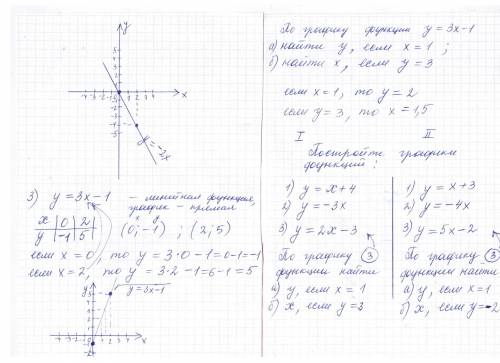 y
x
y=-2x
3) y=3x-1 - линейная функция,
график - прямая
x | 0 | 2
y | -1 | 5
x y
(0;-1) ; (2;5)
если x=0, то y=3·0-1=0-1=-1
если x=2, то y=3·2-1=6-1=5
y
y=3x-1
x
По графику функции y=3x-1
а) найти y, если x=1;
б) найти x, если y=3
если x=1, то y=2
если y=3, то x=1,5
I II
Постройте графики
функций:
1) y=x+4
2) y=-3x
3) y=2x-3
По графику 3
функции найти
а) y, если x=1
б) x, если y=3
1) y=x+3
2) y=-4x
3) y=5x-2
По графику 3
функции найти
а) y, если x=1
б) x, если y=-2